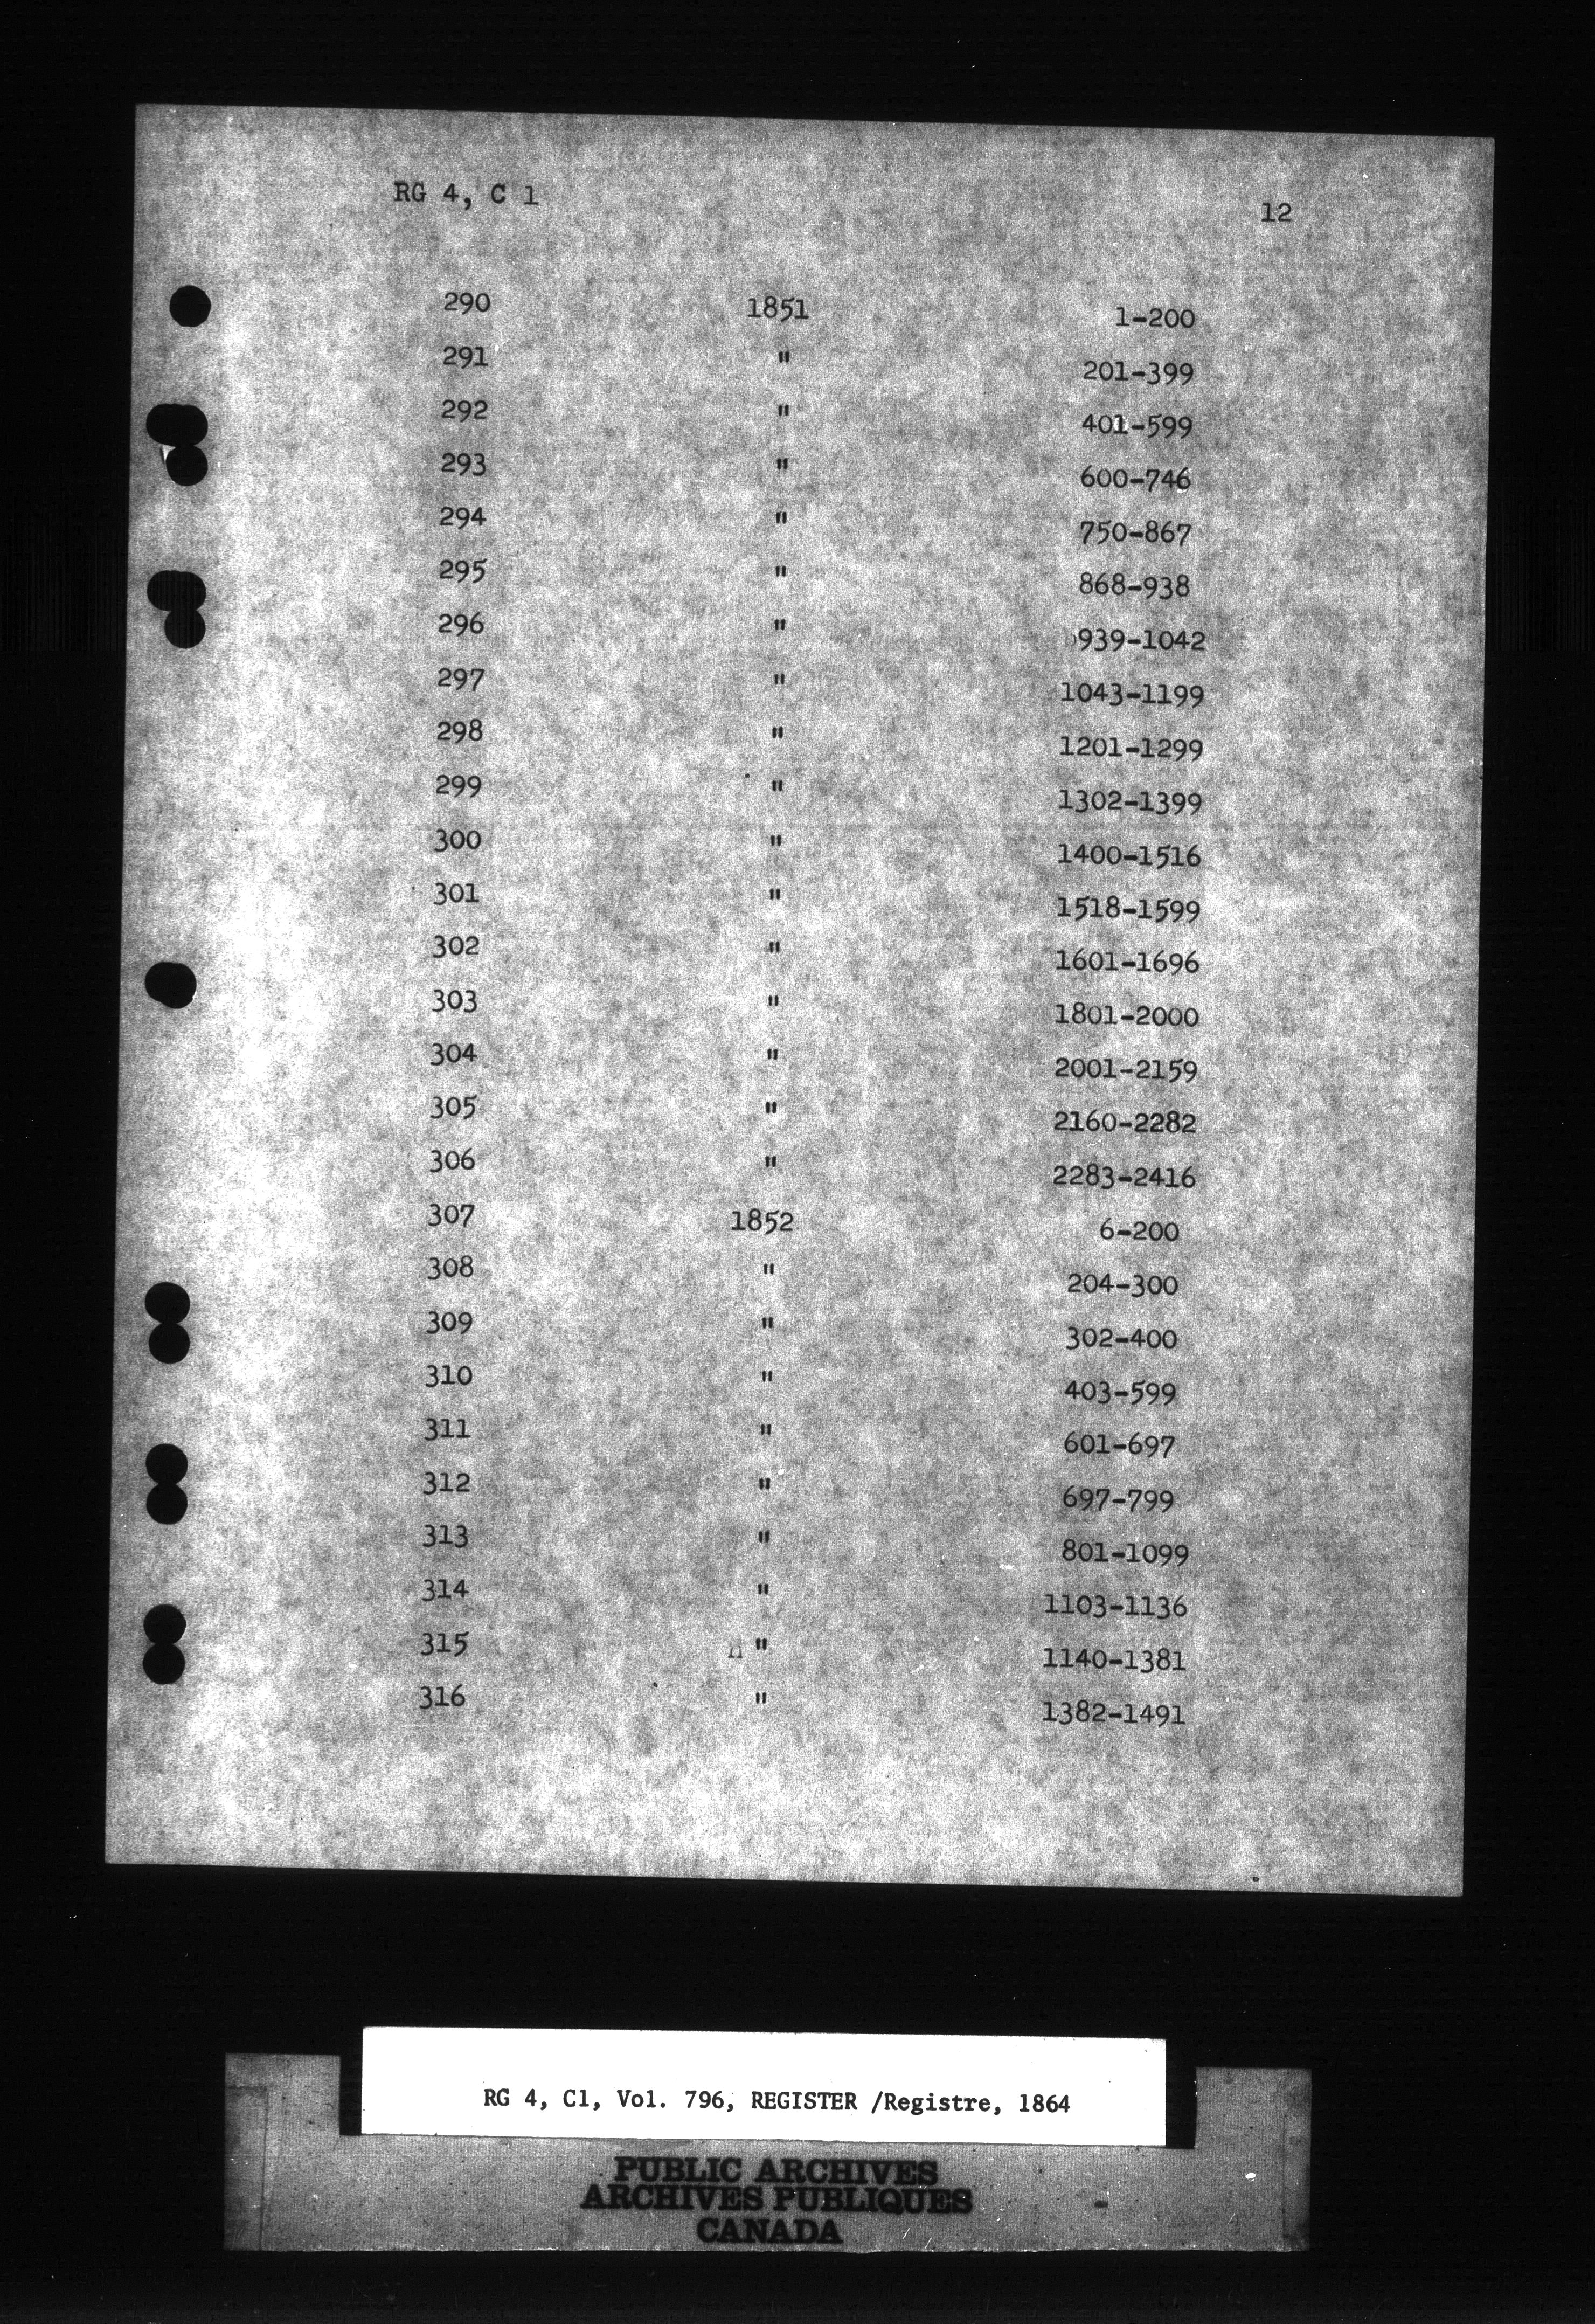 RG 4, C 1 12
290 1851 1-200
291 " 201-399
292 " 401-599
293 " 600-746
294 " 750-867
295 " 868-938
296 " 939-1042
297 " 1043-1199
298 " 1201-1299
299 " 1302-1399
300 " 1400-1516
301 " 1518-1599
302 " 1601-1696
303 " 1801-2000
304 " 2001-2159
305 " 2160-2282
306 " 2283-2416
307 1852 6-200
308 " 204-300
309 " 302-400
310 " 403-599
311 " 601-697
312 " 697-799
313 " 801-1099
314 " 1103-1136
315 " 1140-1381
316 " 1382-1491
RG 4, C1, Vol. 796, REGISTER /Registre, 1864
PUBLIC ARCHIVES
ARCHIVES PUBLIQUES
CANADA